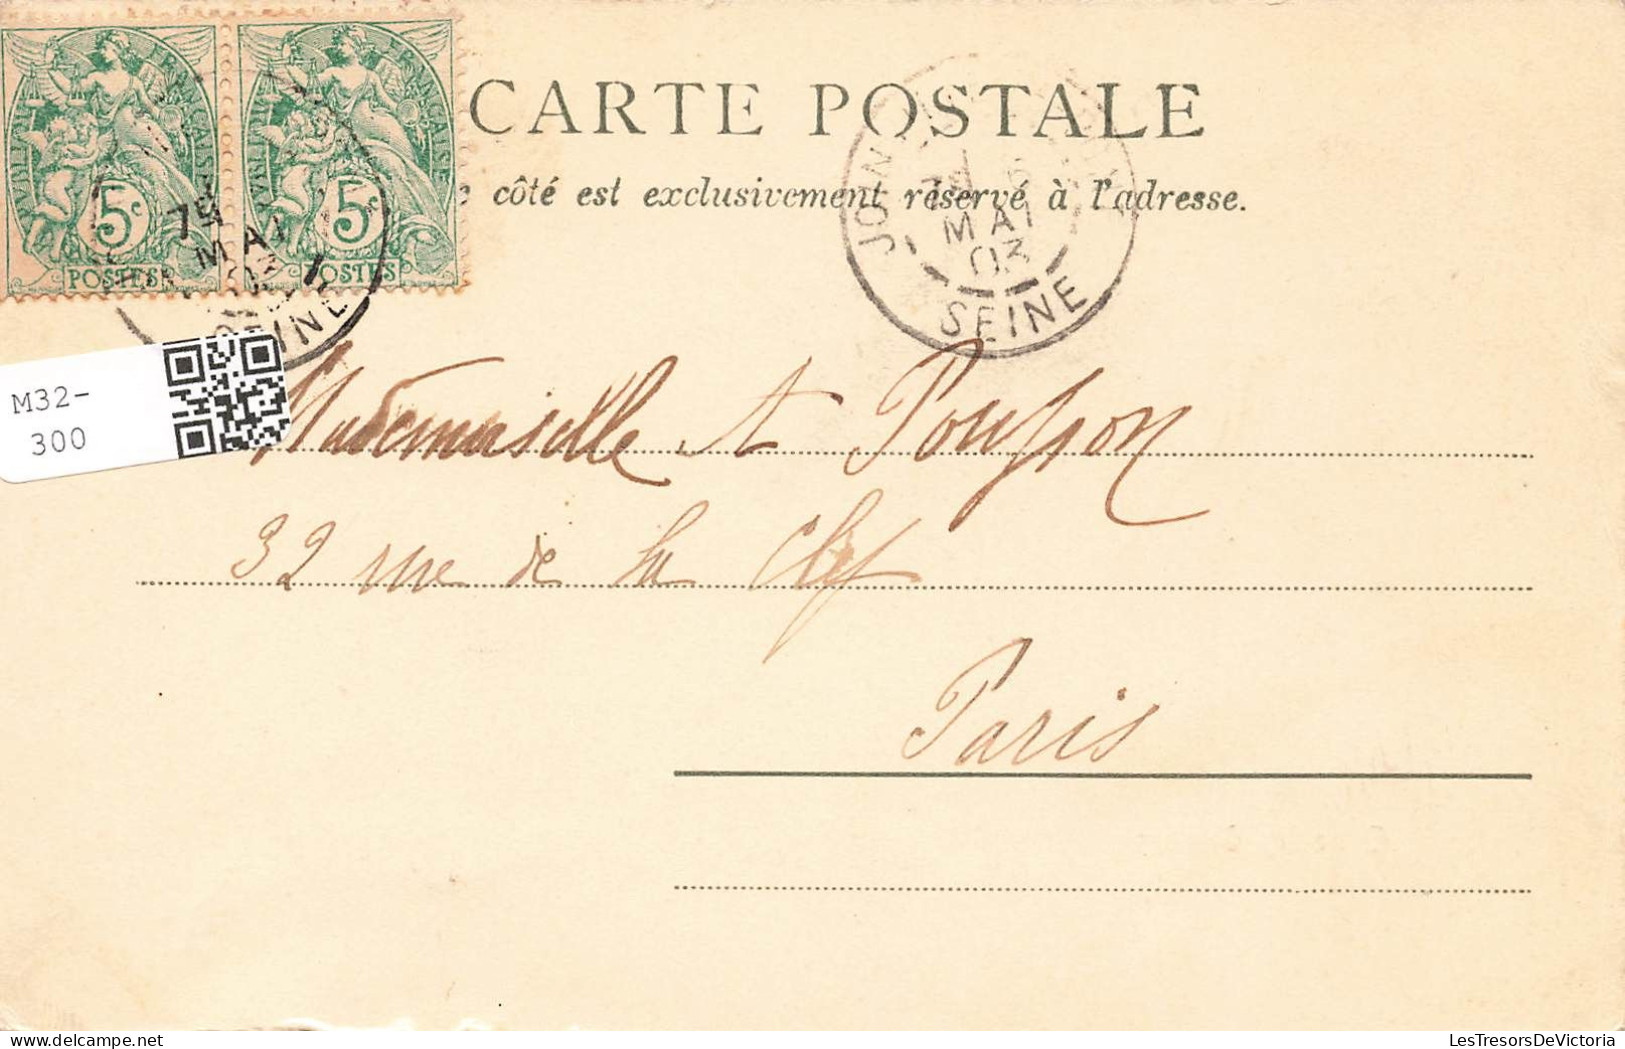 RÉPUBLIQUE FRANÇAISE RÉPUBLIQUE FRANÇAISE
5c 5c
POSTES POSTES
CARTE POSTALE
côté est exclusivement réservé à l'adresse.
MAI
03
SEINE
MAI
03
SEINE
M32-
300
Mademoiselle A
32 rue de la Clef
Paris
LesTresorsDeVictoria